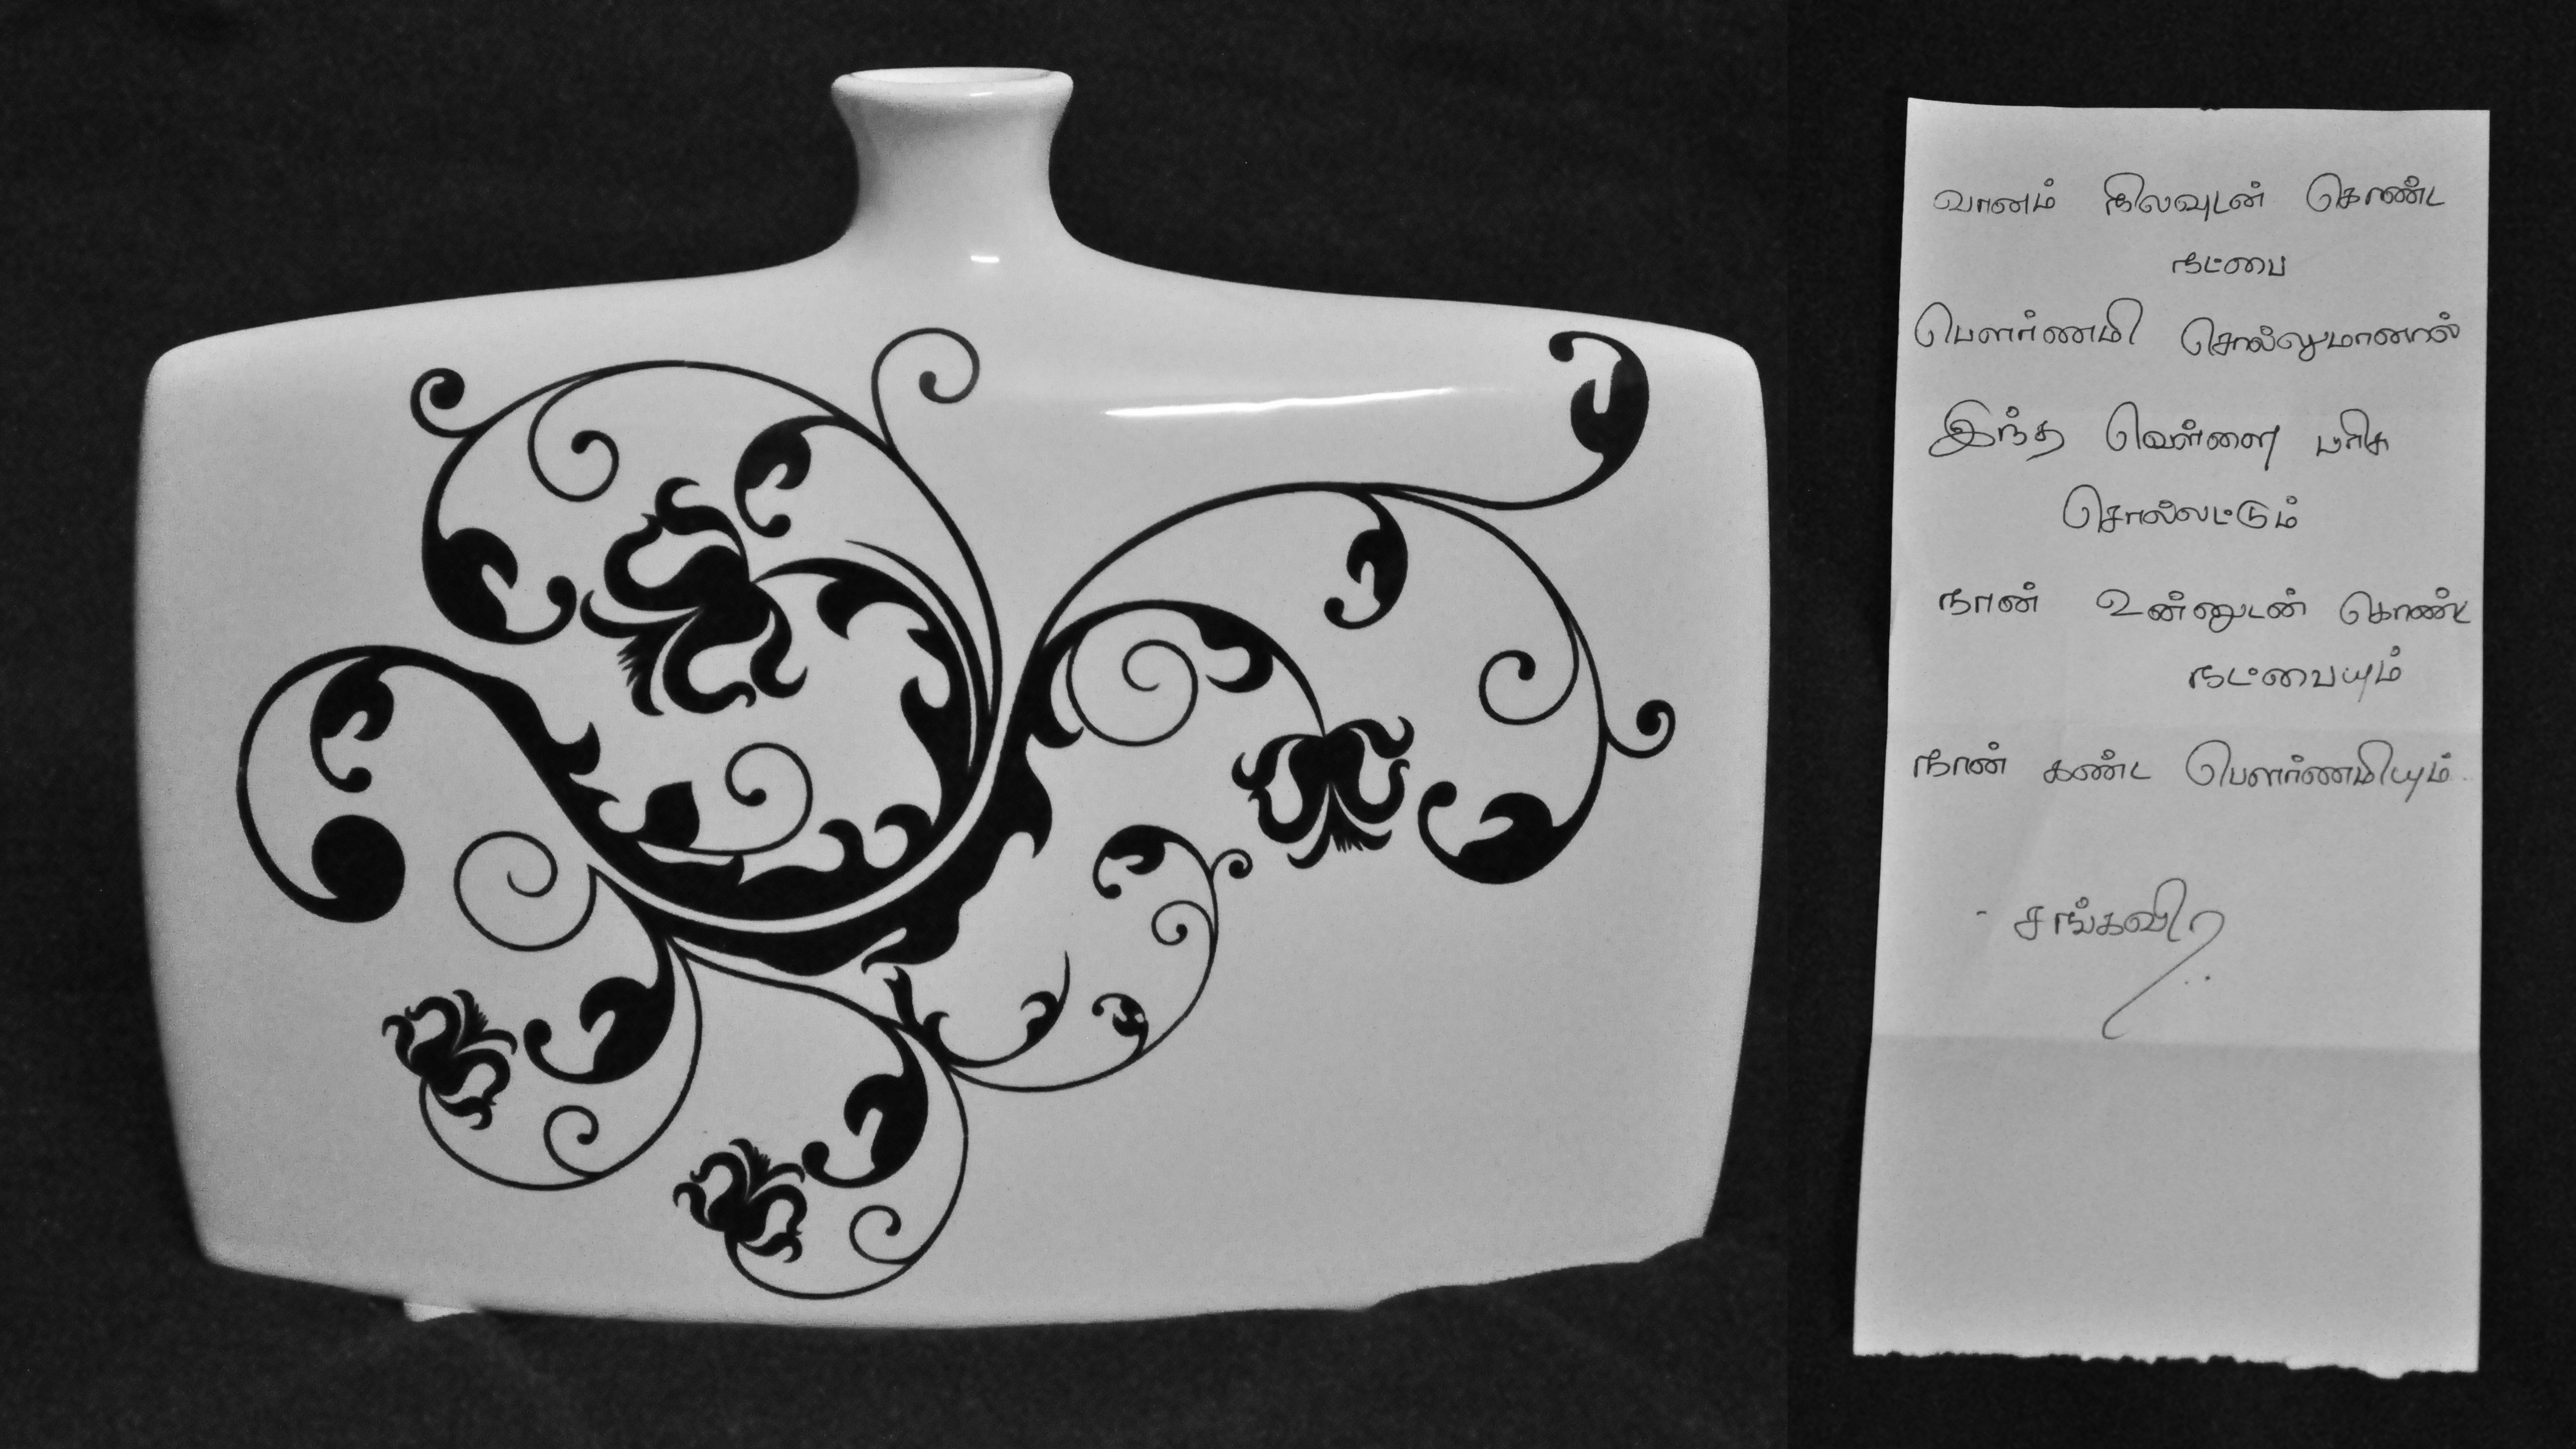 வானம் நிலவுடன் கொண்ட
நட்பை
பௌர்ணமி சொல்லுமானால்
இந்த வெள்ளை பரிசு
சொல்லட்டும்
நான் உன்னுடன் கொண்ட
நட்பையும்
நான் கண்ட பௌர்ணமியும்.
- சங்கவிர